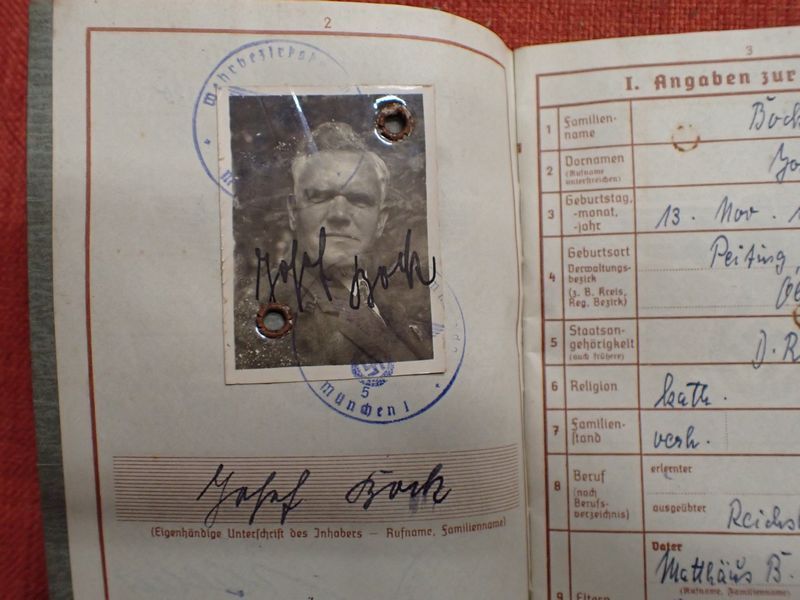 2
Wehrbezirksko
Josef Bock
5
München 1
Josef Bock
(Eigenhändige Unterschrift des Inhabers — Rufname, Familienname)
3
I. Angaben zur
1 Familien-
name
Bock
2 Vornamen
(Rufname
unterstreichen)
Jos
3 Geburtstag,
-monat,
-jahr
13. Nov. 1
4 Geburtsort
Verwaltungs-
bezirk
(z. B. Kreis,
Reg. Bezirk)
Peiting,
Ob
5 Staatsan-
gehörigkeit
(auch frühere)
D. R
6 Religion
kath.
7 Familien-
stand
verh.
8 Beruf
(nach
Berufs-
verzeichnis)
erlernter
ausgeübter
Reichs
9 Eltern
Vater
Matthäus B.
(Rufname, Familienname)